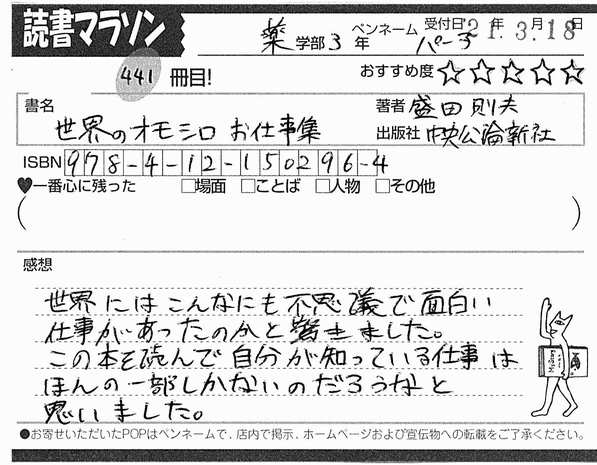 読書マラソン
薬 学部 3 年 ペンネーム パーヲ 受付日'21年3月18日
441 冊目! おすすめ度 ☆☆☆☆☆
書名 世界のオモシロお仕事集
著者 盛田則夫
出版社 中央公論新社
ISBN 978-4-12-150296-4
♥一番心に残った □場面 □ことば □人物 □その他
( )
感想
世界にはこんなにも不思議で面白い
仕事があったのかと驚きました。
この本を読んで自分が知っている仕事は
ほんの一部しかないのだろうなと
思いました。
●お寄せいただいたPOPはペンネームで、店内で掲示、ホームページおよび宣伝物への転載をご了承ください。